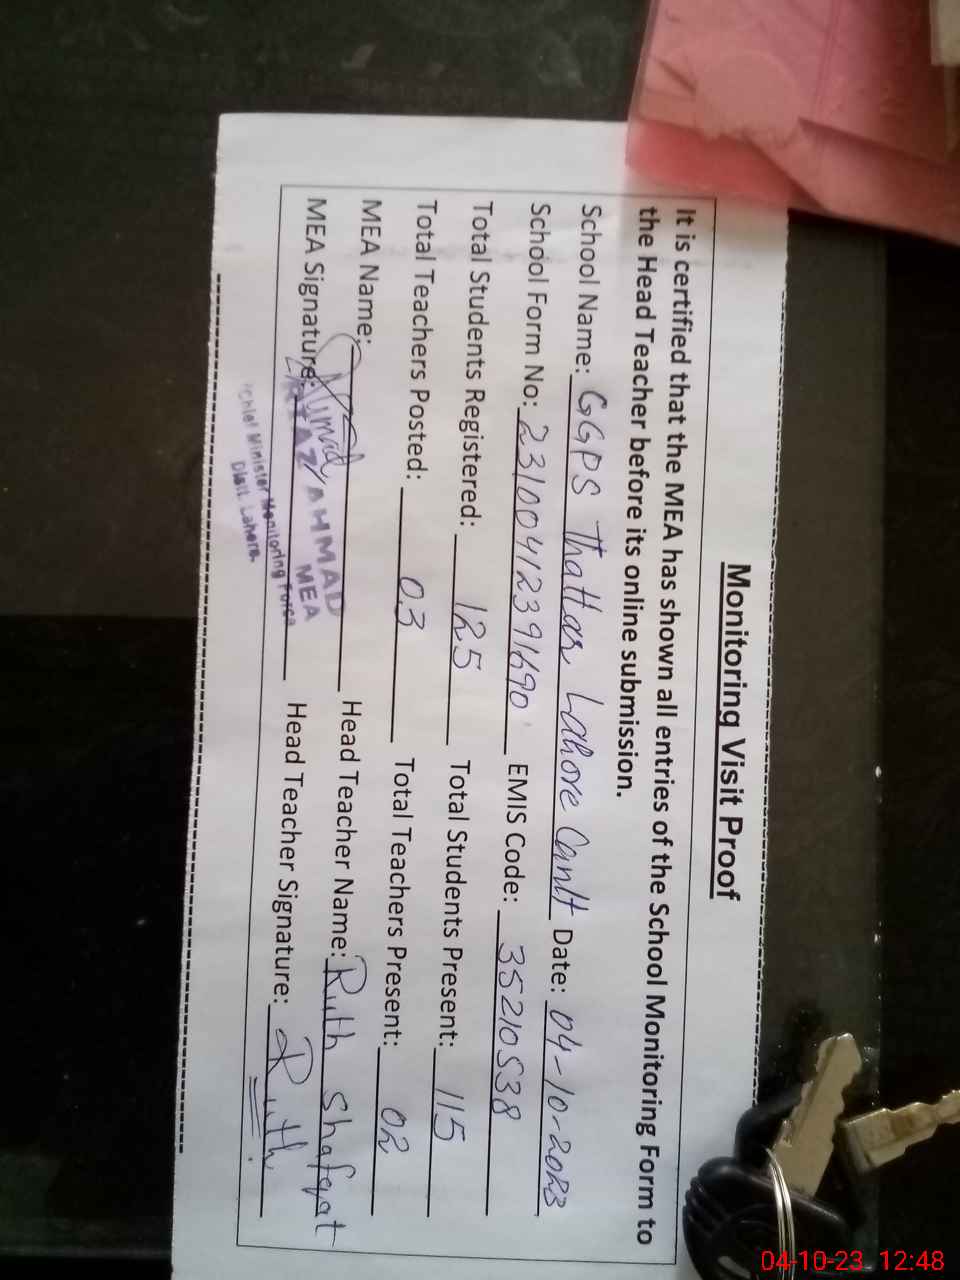 Monitoring Visit Proof
It is certified that the MEA has shown all entries of the School Monitoring Form to
the Head Teacher before its online submission.
School Name: GGPS Thattar Lahore Cantt Date: 04-10-2023
School Form No: 231004123391690 EMIS Code: 35210538
Total Students Registered: 125 Total Students Present: 115
Total Teachers Posted: 03 Total Teachers Present: 02
MEA Name: Head Teacher Name: Ruth Shafqat
MEA Signature: Head Teacher Signature: Ruth
AHMAD
MEA
Chief Minister Monitoring Force
Distt. Lahore.
04-10-23 12:48